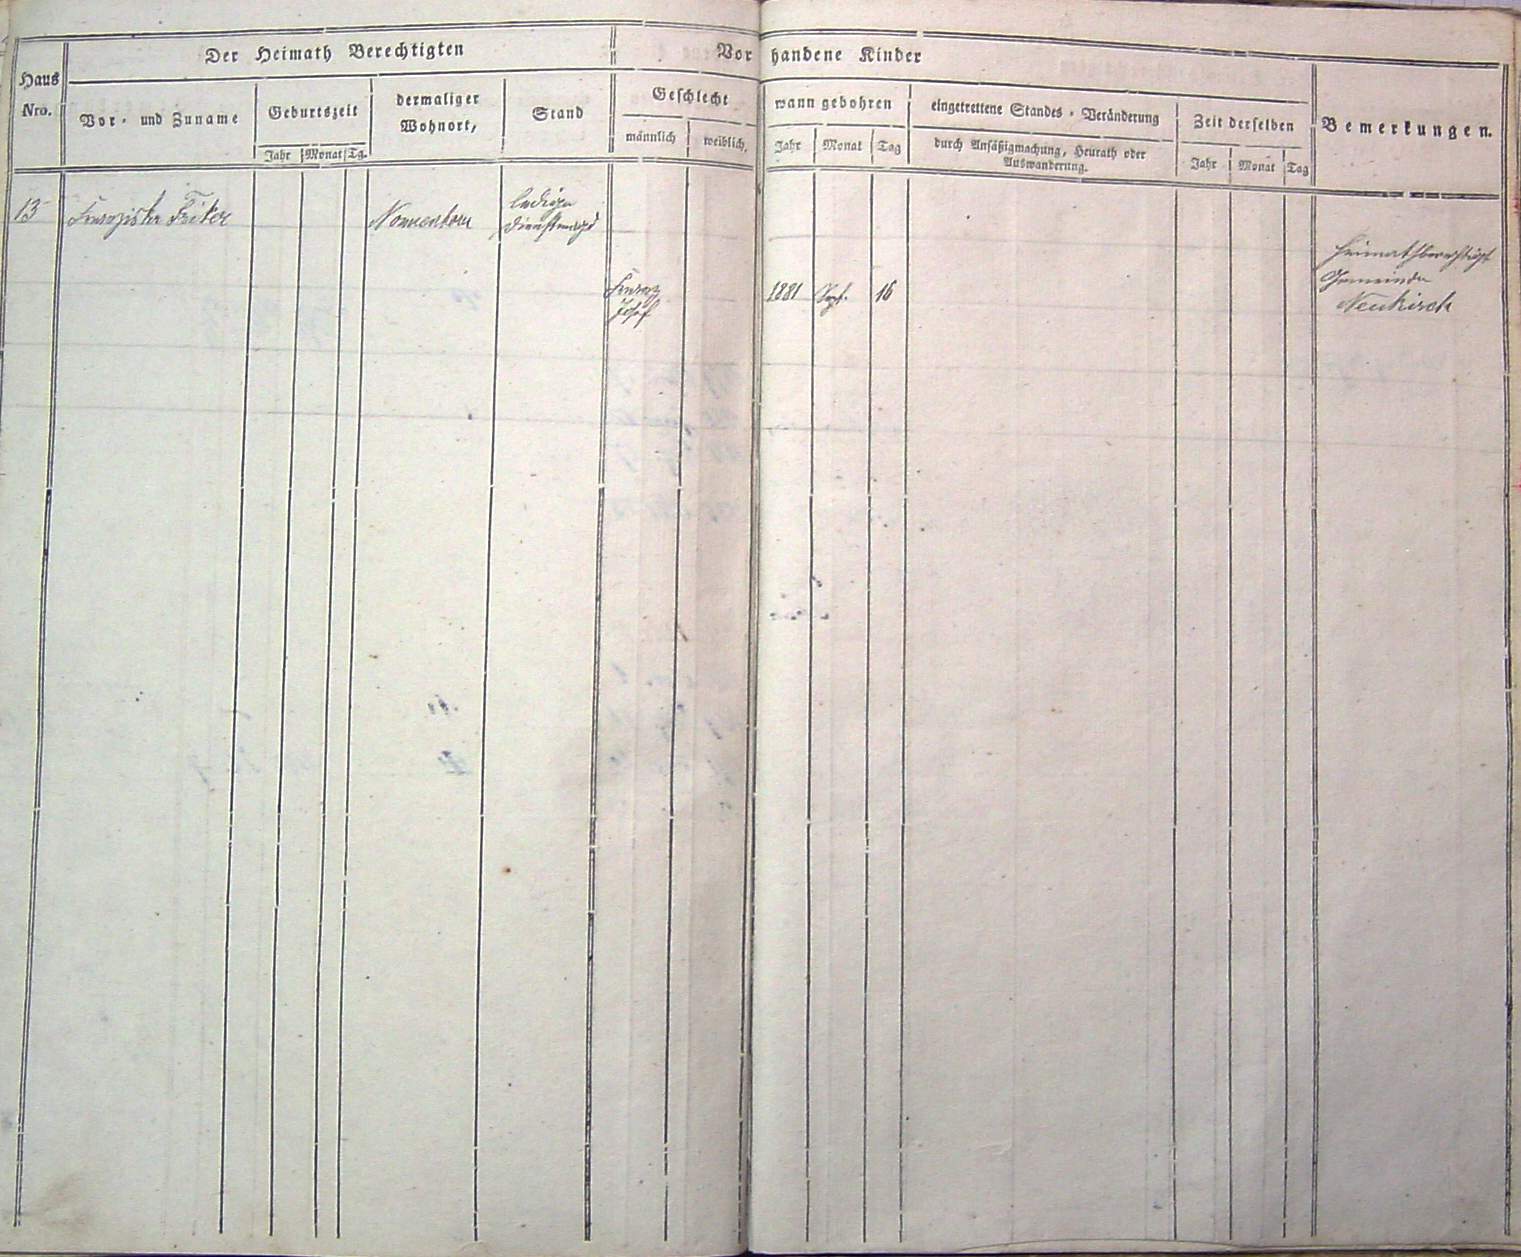 Der Heimath Berechtigten
Vorhandene Kinder
Haus
Nro.
Vor- und Zuname
Geburtszeit
Jahr Monat Tg.
dermaliger
Wohnort,
Stand
Geschlecht
männlich weiblich,
wann gebohren
Jahr Monat Tag
eingetrettene Standes-Veränderung
durch Ansäßigmachung, Heurath oder
Auswanderung.
Zeit derselben
Jahr Monat Tag
Bemerkungen.
13 Franziska Friker Nonnenhorn ledige
Dienstmagd
Franz
Josef
1881 Sept. 16
heimathberechtigt
Gemeinde
Neukirch